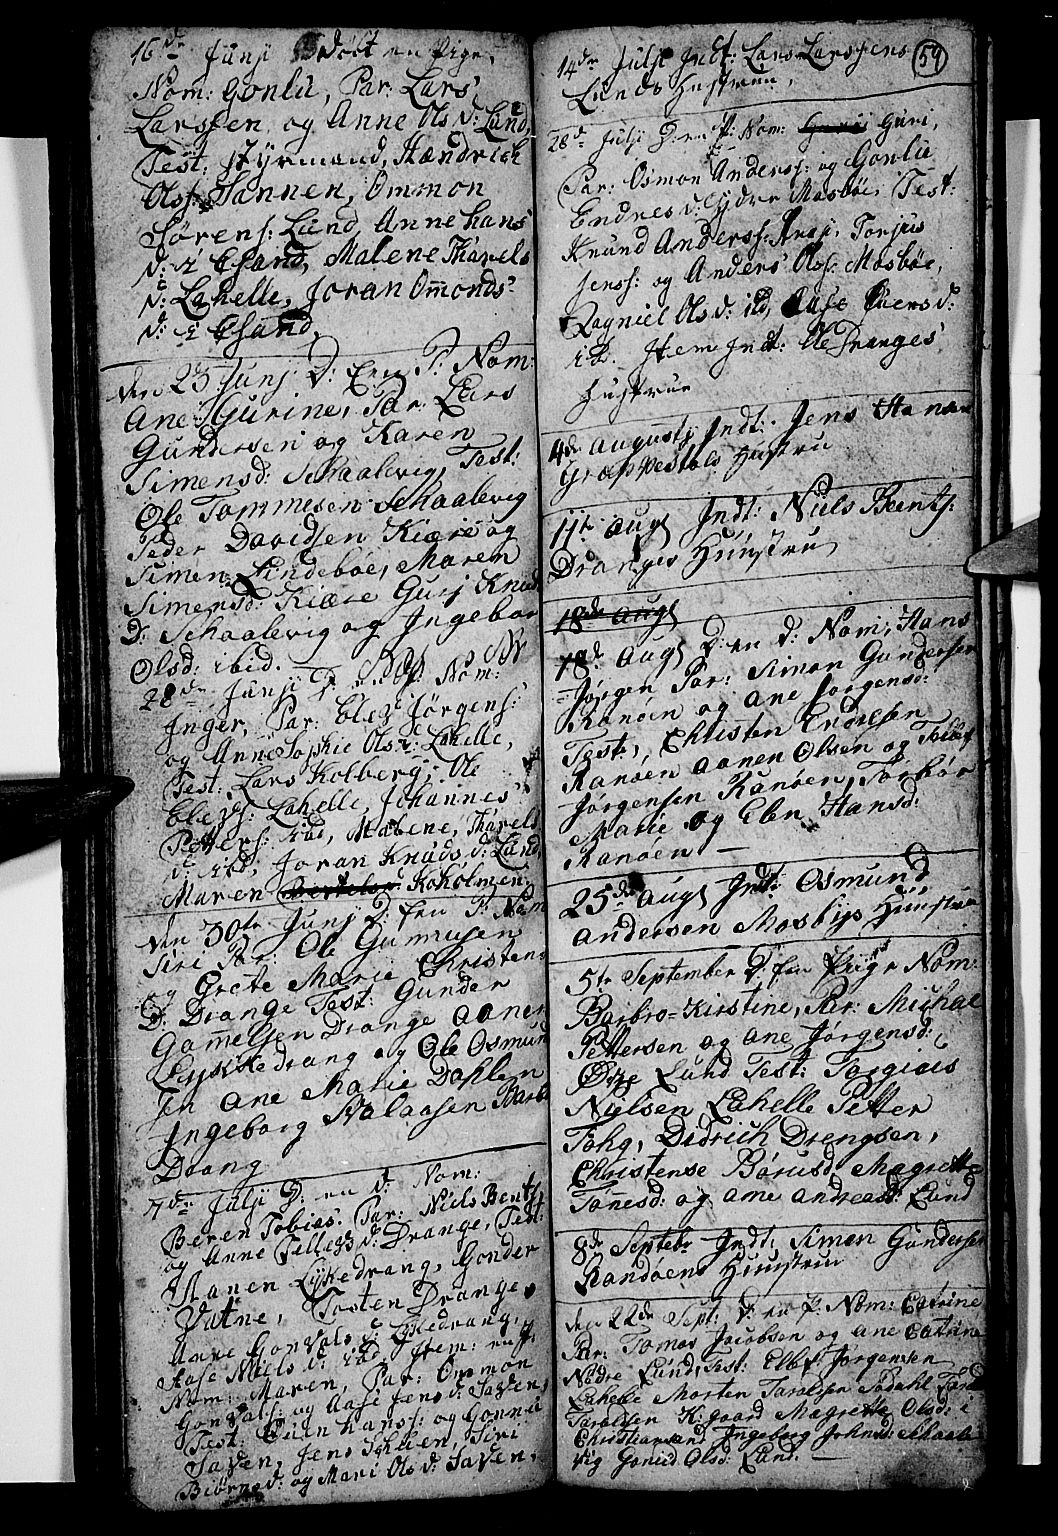 16de Junj Døbt en Pige,
Nom: Gonlu, Par: Lars
Larssen og Anne Ols d: Lund,
Test: Styrmand, Hændrich
Ols: Sannen, Ommon
Sørens: Lund, Anne Hans
d: i Esand, Malene Tharels
d: Lahelle, Joran Ommonds
d: i Esand,
den 25 Junj D: En P: Nom:
Ane Gurine, Par: Lars
Gundersen og Karen
Simensd: Schaalevig, Test:
Ole Tommesen Schaalevig
Peder Davidsen Kiære og
Simen Lindebøe, Maren
Simensd: Kiære Gurj Knud
D: Schaalevig og Ingebor
Olsd: ibid.
28de Junj D en P. Nom:
Inger, Par: Elez Jørgens:
og Anne Sophie Ols d: Lahelle,
Test: Lars Kolberg, Ole
Elezs: Lahelle, Johannes
Petters: ibd, Mabene, Tharels
d: ibd, Joran Knuds d: Lund,
Maren Kokolmen
den 30te Junj D: Een P: Nom
Siri Par: Ole Gunnusen
og Grete Marie Christens
D: Drange Test: Gunder
Gammelsen Drange Aanen
Lykkedrang og Ole Osmund
sen Ane Marie Dahlen
Ingeborg Aslaasen Barbr
Drang
7de Julj D: en d: Nom:
Beren Tobias. Par: Niels Bents:
og Anne Tellezs d: Drange, Test:
Aanen Lykedrang, Gonder
Vatne, Torsten Drange,
Anne Gonvals d: Lykedrang,
Aase Niels d: ibd, Item: en P:
Nom: Maren, Par: Ommon
Gonvals: og Aase Jens d: Saven,
Test: Even Hanss: og Gonne
Saven, Jens Siri
Biørns d: og Mari Ols d: Saven,
59
14de Julj Indt: Lars Larssens
Lunds Hustrue,
28de Julj Dren P: Nom: Guri,
Par: Osmon Anderss: og Gonlu
Endres d: Ydre Mosbøe, Test:
Knund Anderss: Torjus
Jenss: og Anders Ols: Mosbøe,
Ragniel Ols d: ibd, Aase Evers d:
ibd. Item Indt: Ole Dranges
Hustrue
4de Augustj Indt: Jens Hansen
Grøppestols Hustru
11te Augt Indt: Niels Bents:
Dranges Huustru
18de Augt
18de Augt D: en d: Nom: Hans
Jørgen Par: Simon Gundersen
Ranøen og Ane Jorgensd:
Test: Christen Endresen
Ranøen Aanen Olsen og Tobias
Jørgensen Ranøen, Torbor
Marie og Elen Hansd:
Ranøen —
25de Augt Indt: Osmund
Andersen Mosbys Huustru
5te September D: En Piige Nom:
Barbro-Kirstine, Par: Michael
Pettersen og Ane Jørgensd:
Østre Lund Test: Torgius
Nielsen Lahelle Petter
Fohg, Didrich Drengsen,
Christense Børusd: Magrette
Tønesd: og Ane Andreasd: Lund
8de Septebr Indt: Simen Gundersen
Randøens Huustrue
den 22de Sept: D: en P: Nom: Catrine
Par: Tomas Jacobsen og Ane Catrine
Nødre Lund, Test: Elbt Jørgensen
Lahelle Morten Taralsen Sødahl Taral
Taraldsen K:gaard Magrette Olsd: i
Christiansand Ingeborg Johnsd: Schaale
vig Gonild Olsd: Lund. —